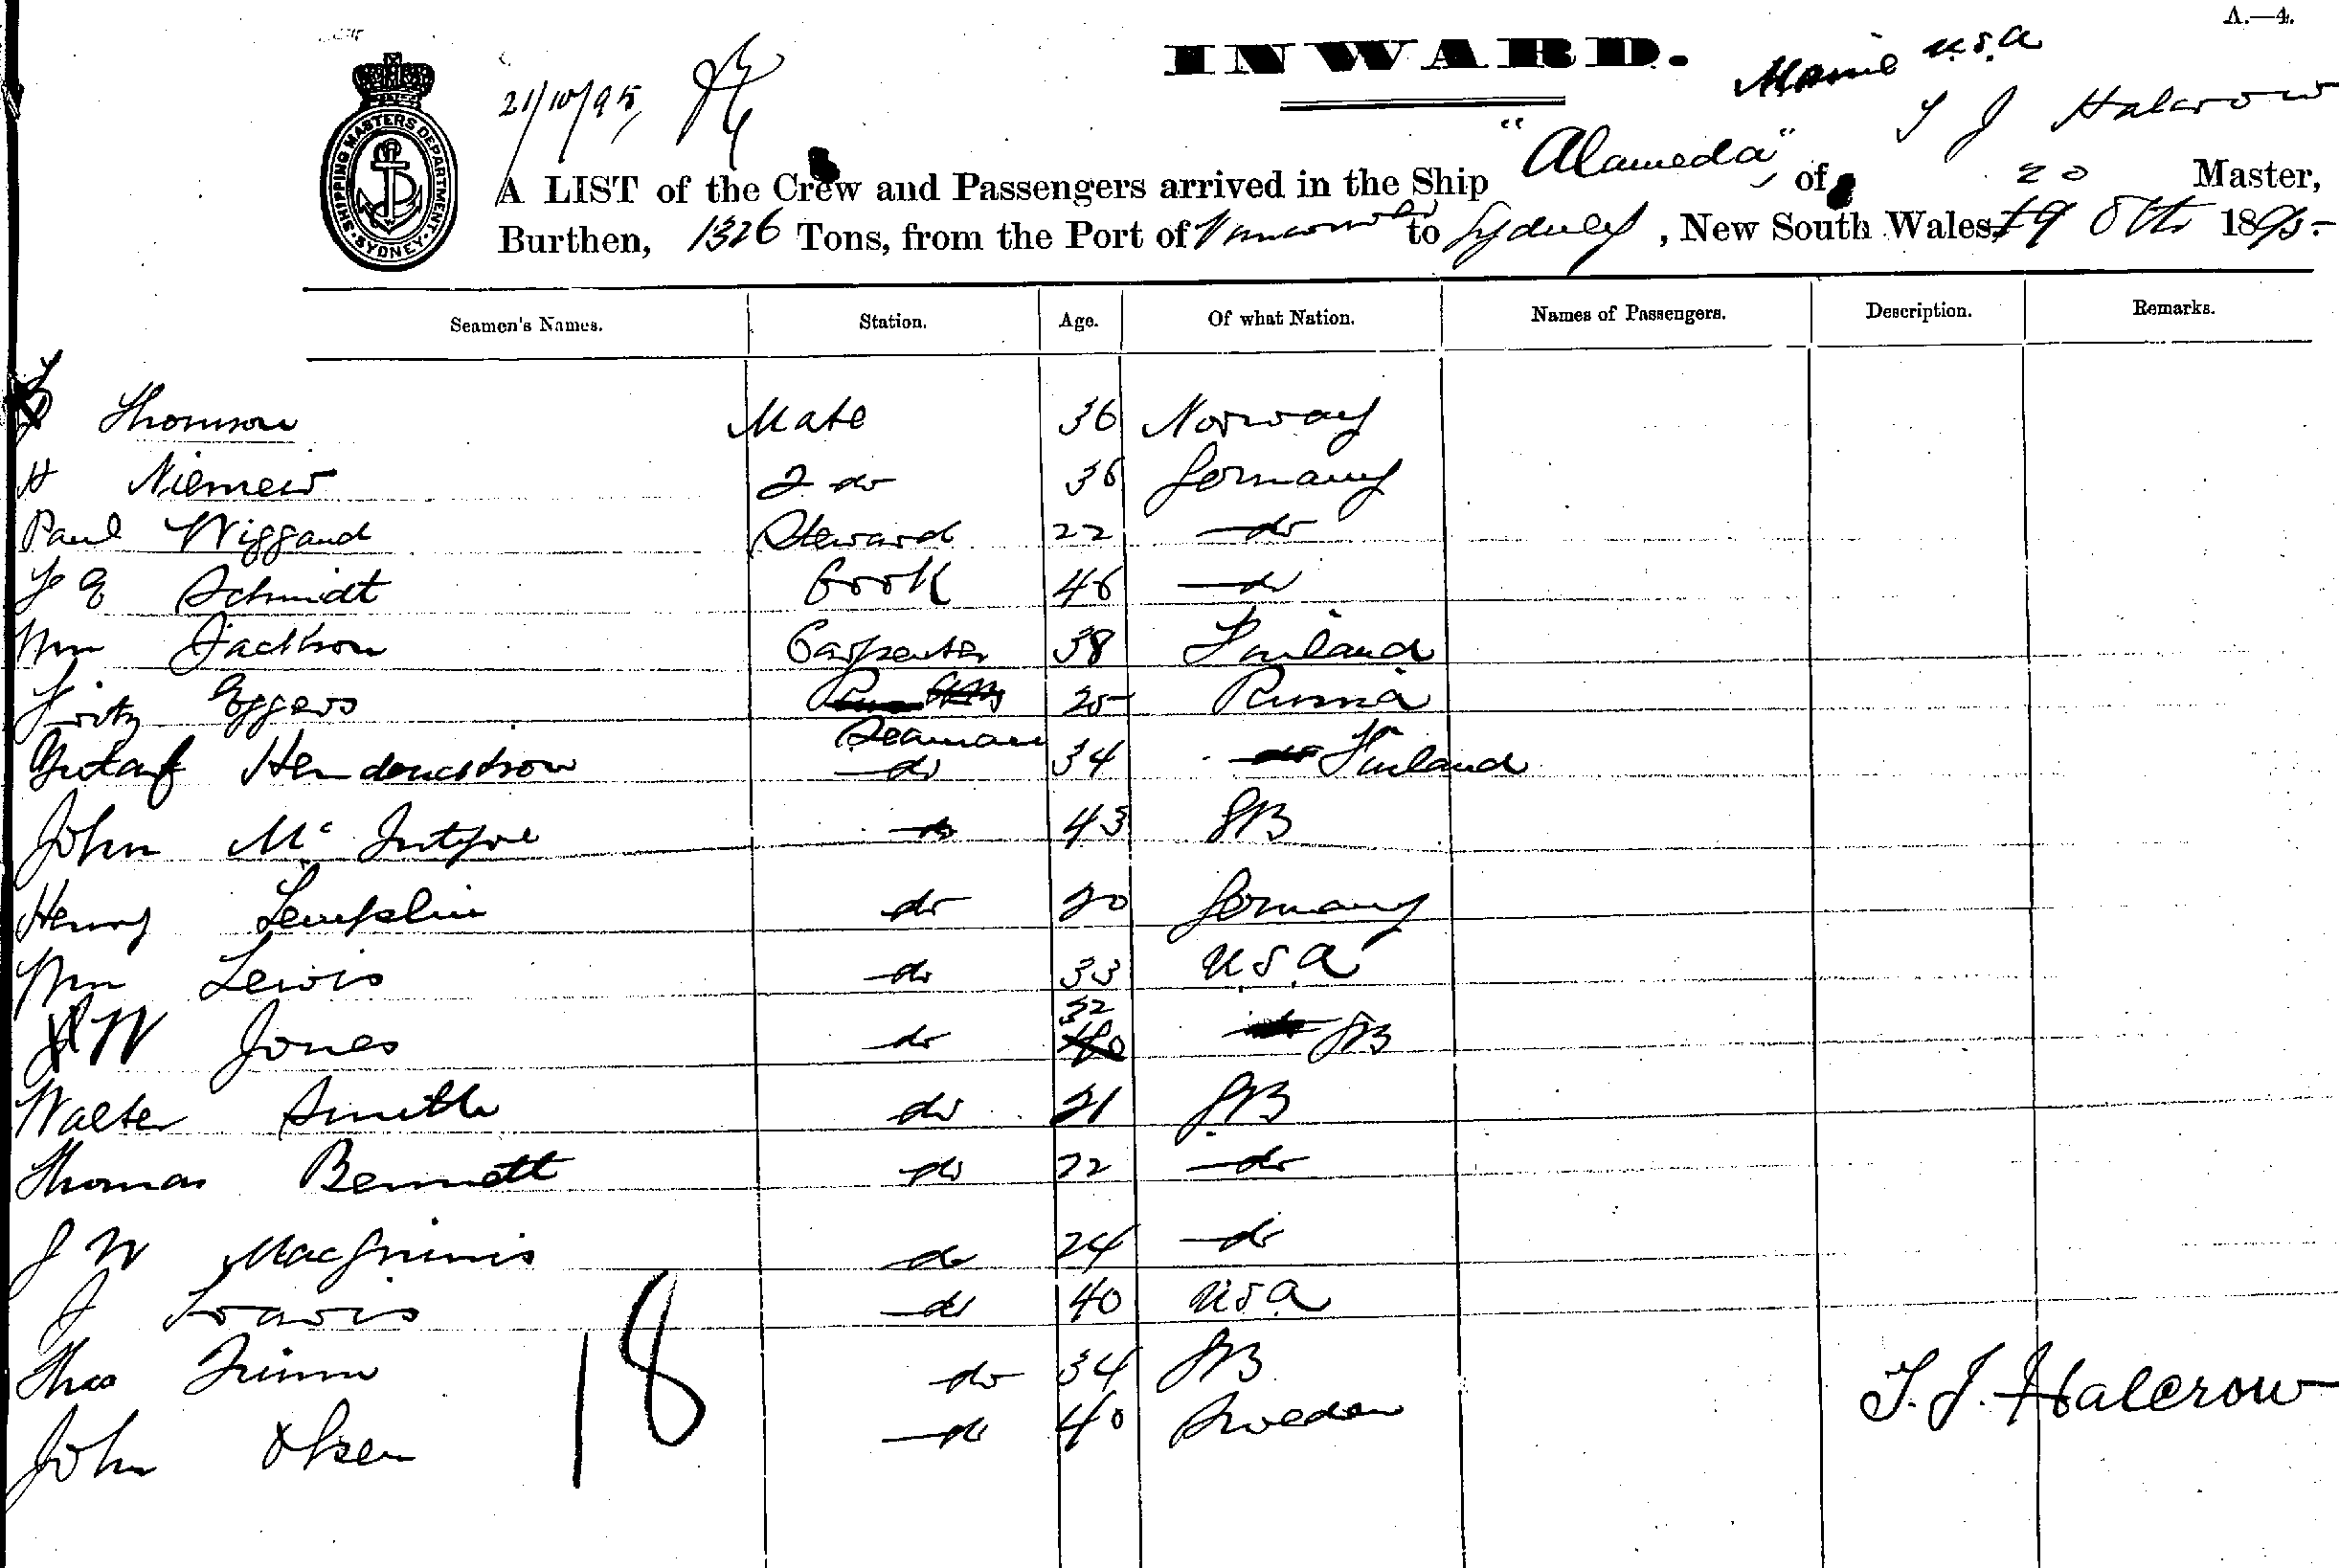 A.—4.
INWARD.
Maine U.S.A
21/10/95
T J Halcrow
SHIPPING MASTERS DEPARTMENT. SYDNEY.
A LIST of the Crew and Passengers arrived in the Ship "Alameda", of Master,
20
Burthen, 1326 Tons, from the Port of Vancouver to Sydney, New South Wales, 19 Oct 1895.
Seamen's Names. Station. Age. Of what Nation. Names of Passengers. Description. Remarks.
Thomson Mate 36 Norway
H Niemeir 2 do 36 Germany
Paul Wiggand Steward 22 do
Schmidt Cook 46 do
Wm Jackson Carpenter 38 Finland
Fritz Eggers 25 Russia
Seaman
Gustaf do 34 Finland
John McIntyre do 43 GB
Henry Templin do 20 Germany
Wm Lewis do 33 U.S.A
32
W Jones do GB
Walter Smith do 21 GB
Thomas Bennett do 22 do
J W MacGinnis do 24 do
J Travis do 40 USA
Thos do 34 GB
John Olsen do 40 Sweden
18
T. J. Halcrow